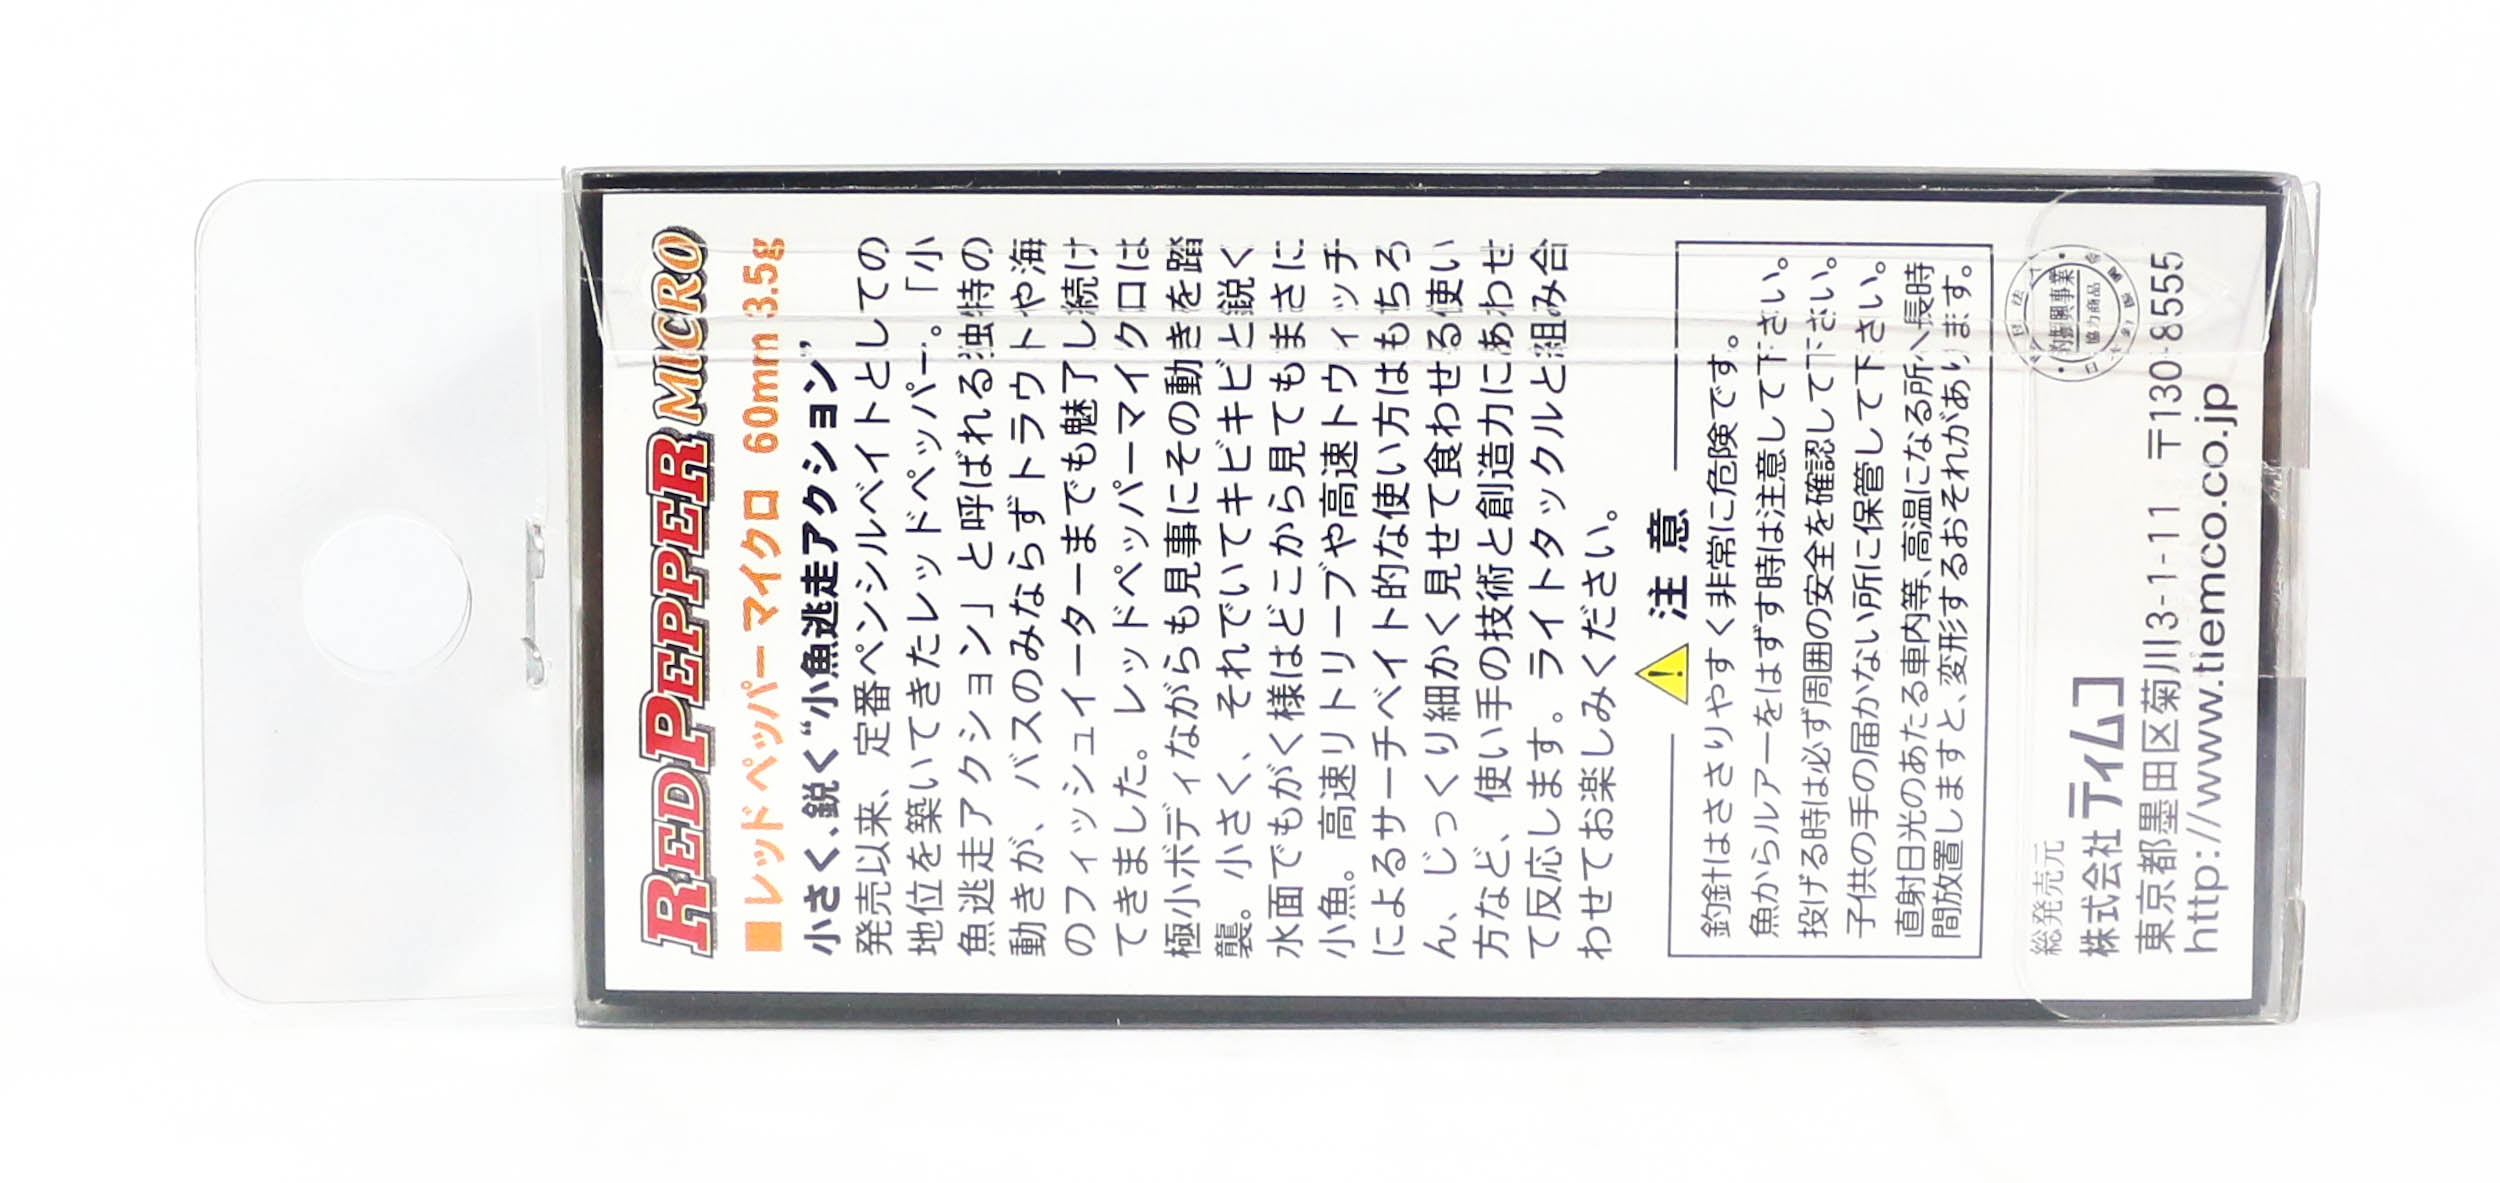 RED PEPPER MICRO
■レッドペッパー マイクロ 60mm 3.5g
小さく、鋭く“小魚逃走アクション”
発売以来、定番ペンシルベイトとしての
地位を築いてきたレッドペッパー。「小
魚逃走アクション」と呼ばれる独特の
動きが、バスのみならずトラウトや海
のフィッシュイーターまでも魅了し続け
てきました。レッドペッパーマイクロは
極小ボディながらも見事にその動きを踏
襲。小さく、それでいてキビキビと鋭く
水面でもがく様はどこから見てもまさに
小魚。高速リトリーブや高速トウィッチ
によるサーチベイト的な使い方はもちろ
ん、じっくり細かく見せて食わせる使い
方など、使い手の技術と創造力にあわせ
て反応します。ライトタックルと組み合
わせてお楽しみください。
注 意
釣針はささりやすく非常に危険です。
魚からルアーをはずす時は注意して下さい。
投げる時は必ず周囲の安全を確認して下さい。
子供の手の届かない所に保管して下さい。
直射日光のあたる車内等、高温になる所へ長時
間放置しますと、変形するおそれがあります。
釣振興事業
協力商品
総発売元
株式会社 ティムコ
東京都墨田区菊川3-1-11 〒130-8555
http://www.tiemco.co.jp